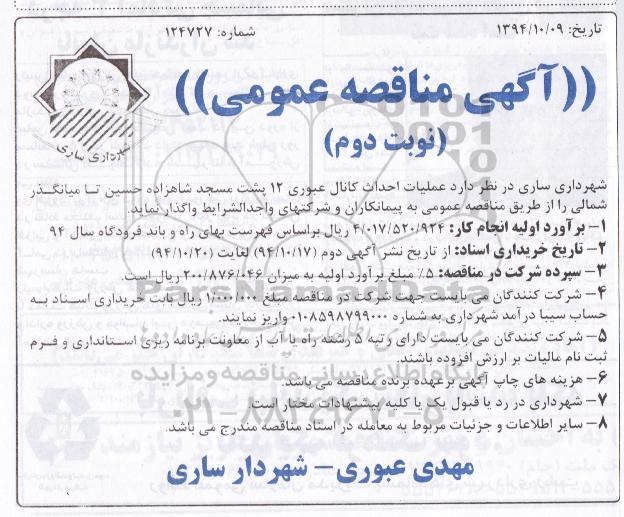 تاریخ: ۱۳۹۴/۱۰/۰۹
شماره: ۱۲۴۷۲۷
((آگهی مناقصه عمومی))
(نوبت دوم)
شهرداری ساری
شهرداری ساری در نظر دارد عملیات احداث کانال عبوری ۱۲ پشت مسجد شاهزاده حسین تا میانگذر
شمالی را از طریق مناقصه عمومی به پیمانکاران و شرکتهای واجدالشرایط واگذار نماید.
۱- برآورد اولیه انجام کار: ۴/۰۱۷/۵۲۰/۹۲۴ ریال براساس فهرست بهای راه و باند فرودگاه سال ۹۴
۲- تاریخ خریداری اسناد: از تاریخ نشر آگهی دوم (۹۴/۱۰/۱۷) لغایت (۹۴/۱۰/۲۰)
۳- سپرده شرکت در مناقصه: ۵٪ مبلغ برآورد اولیه به میزان ۲۰۰/۸۷۶/۰۴۶ ریال است.
۴- شرکت کنندگان می بایست جهت شرکت در مناقصه مبلغ ۱/۰۰۰/۰۰۰ ریال بابت خریداری اسناد به
حساب سیبا درآمد شهرداری به شماره ۰۱۰۸۵۹۸۷۹۹۰۰۰ واریز نمایند.
۵- شرکت کنندگان می بایست دارای رتبه ۵ رشته راه یا آب از معاونت برنامه ریزی استانداری و فرم
ثبت نام مالیات بر ارزش افزوده باشند.
۶- هزینه های چاپ آگهی برعهده برنده مناقصه می باشد.
۷- شهرداری در رد یا قبول یک یا کلیه پیشنهادات مختار است.
۸- سایر اطلاعات و جزئیات مربوط به معامله در اسناد مناقصه مندرج می باشد.
مهدی عبوری- شهردار ساری
ParsNamadData
پایگاه اطلاع رسانی مناقصه و مزایده
۰۲۱-۸۸۳۴۹۶۷۰-۵